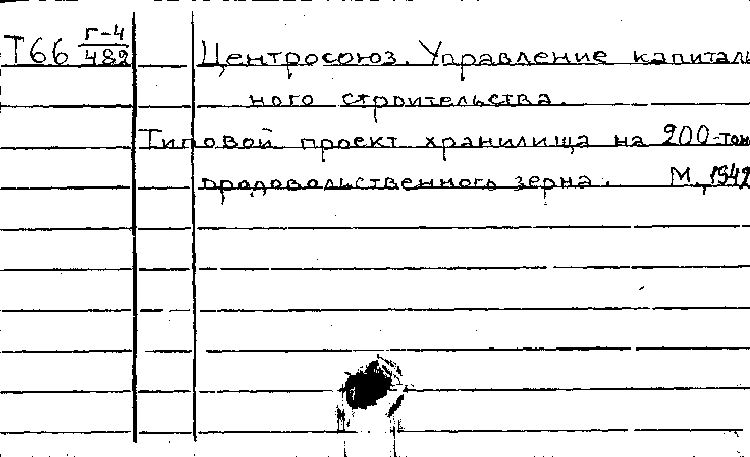 Т66 Г-4/482 Центросоюз. Управление капиталь
ного строительства.
Типовой проект хранилища на 200-тон
продовольственного зерна. М., 1942